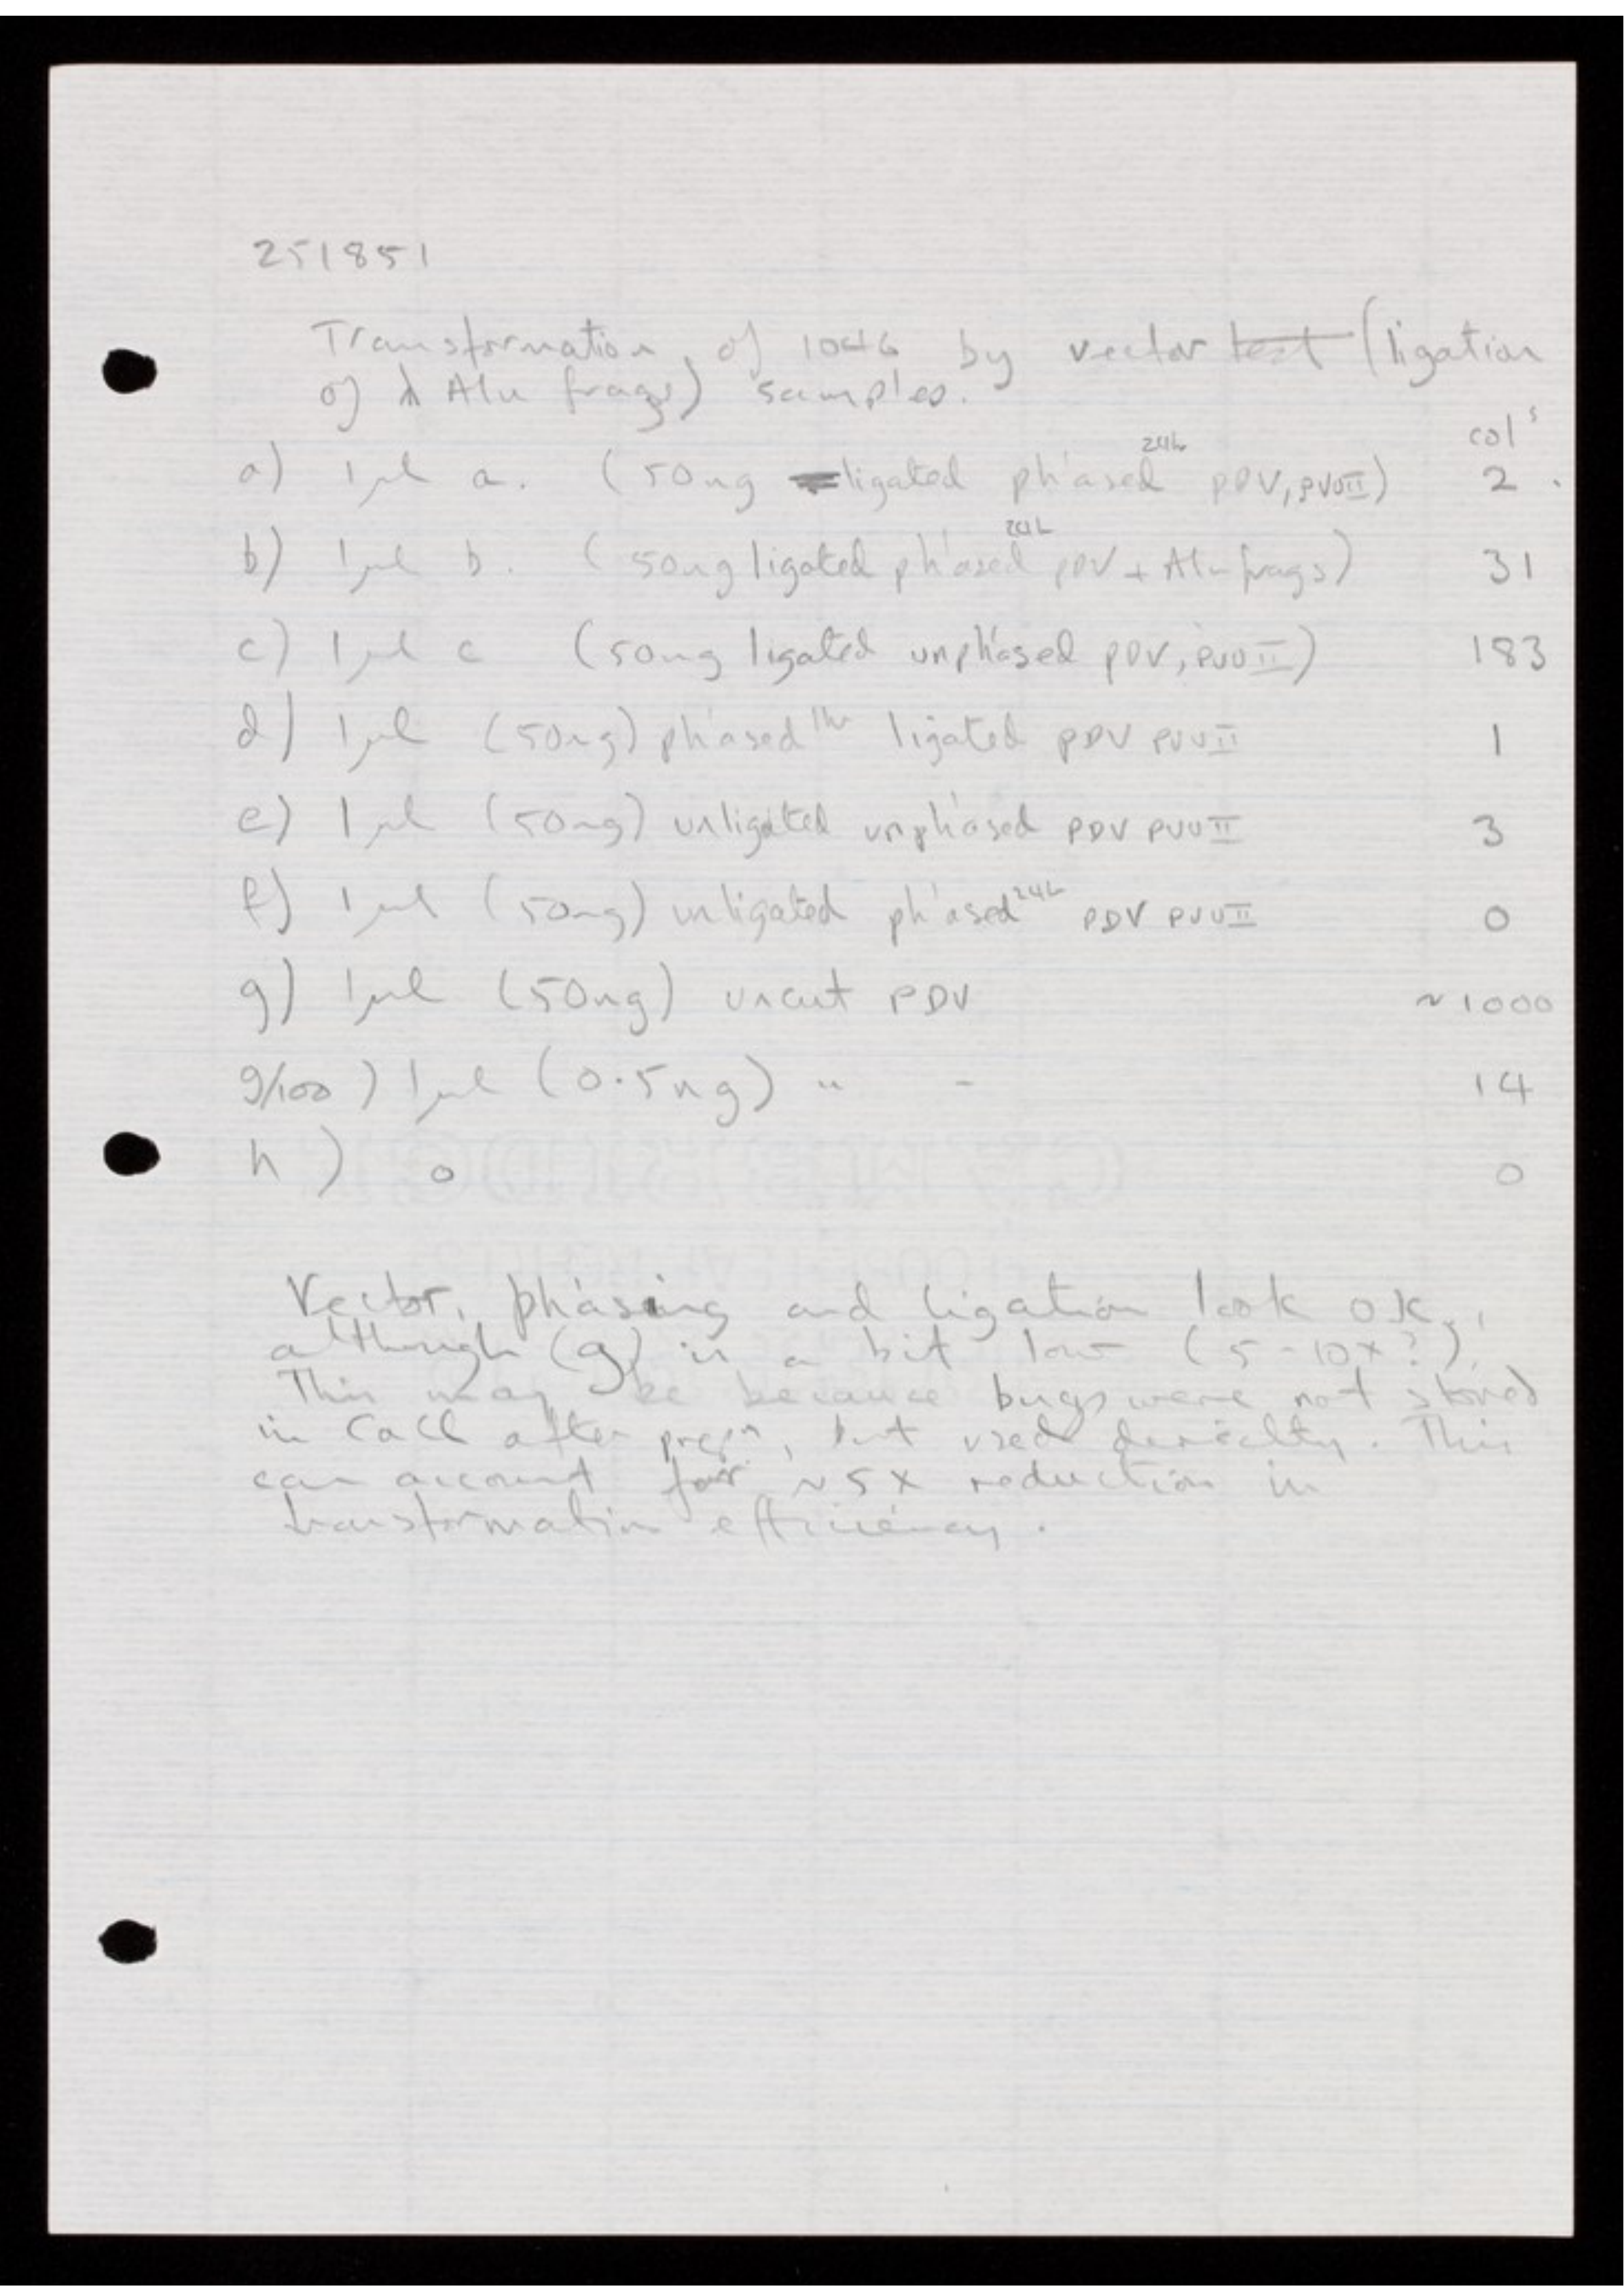 251851
Transformation of 1046 by vector test (ligation
of λ Alu frags) samples.
col's
a) 1μl a. (50ng ligated ph'ased 24h pDV, PVUII) 2
b) 1μl b. (50ng ligated ph'ased 24h pDV + Alu frags) 31
c) 1μl c (50ng ligated unph'ased pDV, PVUII) 183
d) 1μl (50ng) ph'ased 1hr ligated pDV PVUII 1
e) 1μl (50ng) unligated unph'ased pDV PVUII 3
f) 1μl (50ng) unligated ph'ased 24h pDV PVUII 0
g) 1μl (50ng) uncut pDV ~1000
g/100) 1μl (0.5ng) " - 14
h) 0 0
Vector, ph'asing and ligation look OK,
although (g) is a bit low (5-10x?).
This may be because bugs were not stored
in CaCl after prep'n, but used. This
can account for ~5x reduction in
transformation efficiency.